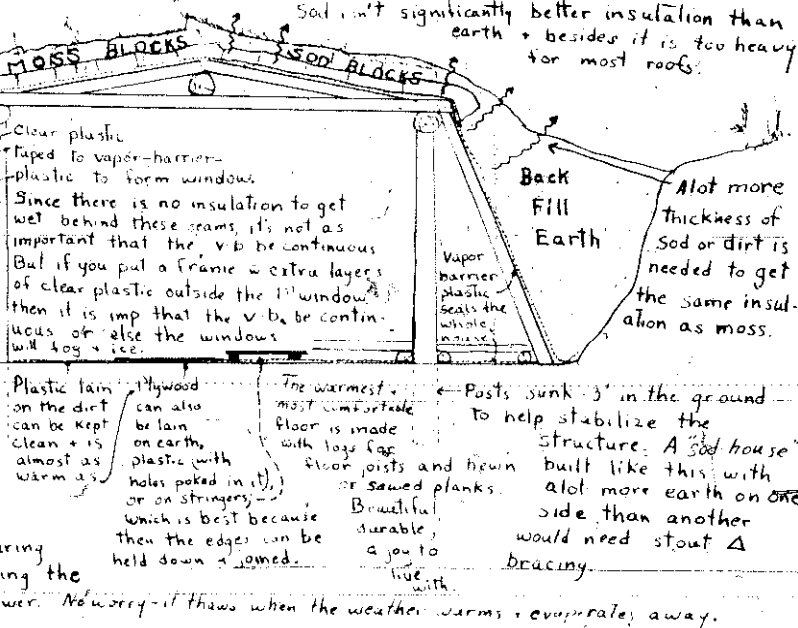 Sod isn't significantly better insulation than
earth + besides it is too heavy
for most roofs.
MOSS BLOCKS
SOD BLOCKS
Clear plastic
taped to vapor-barrier-
plastic to form window.
Since there is no insulation to get
wet behind these seams, it's not as
important that the v.b be continuous
But if you put a frame w extra layers
of clear plastic outside the 1st window
then it is imp that the v.b. be contin-
uous or else the windows
will fog + ice.
Vapor
barrier
plastic
seals the
whole
house
Back
Fill
Earth
Alot more
thickness of
sod or dirt is
needed to get
the same insul-
ation as moss.
Plastic lain
on the dirt
can be kept
clean + is
almost as
warm as
Plywood
can also
be lain
on earth,
plastic (with
holes poked in it),
or on stringers,
which is best because
then the edges can be
held down + joined.
The warmest +
most comfortable
floor is made
with logs for
floor joists and hewn
or sawed planks.
Beautiful
durable,
a joy to
live
with.
Posts sunk 3' in the ground
to help stabilize the
structure. A "sod house"
built like this with
alot more earth on one
side than another
would need stout Δ
bracing.
aring
ing the
wer. No worry-it thaws when the weather warms + evaporates away.